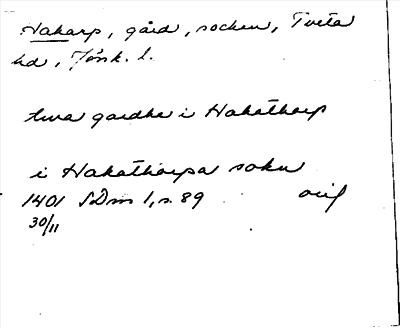 Hakarp, gård, socken, Tveta
hd, Jönk. l.
twa gardha i Hakathorp
i Hakathorpa sokn
1401 SDns 1, s. 89 orig
30/11